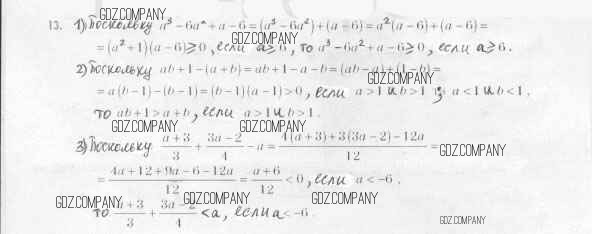 GDZ.COMPANY
13. 1) Поскольку a³ − 6a² + a − 6 = (a³ − 6a²) + (a − 6) = a²(a − 6) + (a − 6) =
GDZ.COMPANY
= (a² + 1)(a − 6) ⩾ 0, если a ⩾ 6, то a³ − 6a² + a − 6 ⩾ 0, если a ⩾ 6.
2) Поскольку ab + 1 − (a + b) = ab + 1 − a − b = (ab − a) + (1 − b) =
GDZ.COMPANY
= a(b − 1) − (b − 1) = (b − 1)(a − 1) > 0, если a > 1 и b > 1 a < 1 и b < 1,
то ab + 1 > a + b, если a > 1 и b > 1.
GDZ.COMPANY GDZ.COMPANY
3) Поскольку (a + 3)/3 + (3a − 2)/4 − a = (4(a + 3) + 3(3a − 2) − 12a)/12 = GDZ.COMPANY
= (4a + 12 + 9a − 6 − 12a)/12 = (a + 6)/12 < 0, если a < −6,
GDZ.COMPANY GDZ.COMPANY GDZ.COMPANY
то (a + 3)/3 + (3a − 2)/4 < a, если a < −6
GDZ.COMPANY